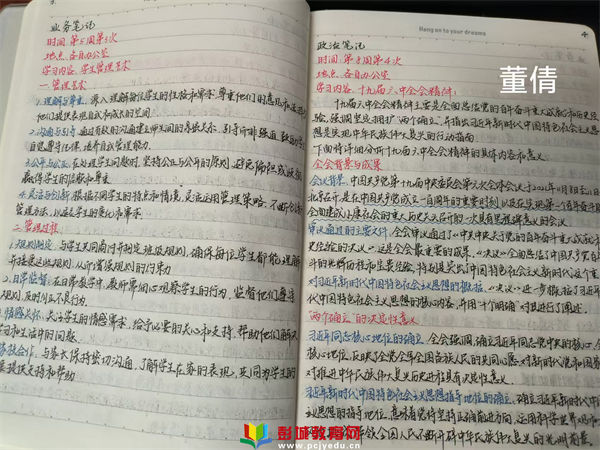 业务笔记
时间 第5周第3次
地点 各自办公室
学习内容 学生管理艺术
一 管理艺术
1. 理解与尊重 深入理解每位学生的性格和需求,尊重他们的意见和选择
他们提供表现自我和成长的空间
2. 沟通与引导
自觉遵守纪律,培养自我管理能力
3. 公平与公正 在处理学生问题时,坚持公正与公平的原则,避免偏袒或歧视
赢得学生的信赖和尊重
4. 灵活与创新 根据不同学生的特点和情境,灵活运用管理策略,不断创新
管理方法,以适应学生的变化和需求
二 管理过程
1. 规则制定 与学生共同商讨并制定班级规则,确保每位学生都能理解
并接受这些规则,从而增强规则的约束力
2. 日常监督 在日常教学中,教师需细心观察学生的行为,监督他们遵守
规则,及时纠正不良行为
情感关怀 关注学生的情感需求,给予必要的关心和支持,帮助他们解决
学习和生活中的问题
与家长保持密切沟通,了解学生在家的表现,共同为学生的
提供支持和帮助
Hang on to your dreams
政治笔记
时间 第5周第4次
地点 各自办公室
学习内容 十九届六中全会精神
董倩
十九届六中全会精神主要是全面总结党的百年奋斗重大成就和历史经
验,强调坚决拥护"两个确立",并指出习近平新时代中国特色社会主义
思想是实现中华民族伟大复兴的行动指南
下面将详细分析十九届六中全会精神的具体内容和意义
全会背景与成果
会议背景 中国共产党第十九届中央委员会第六次全体会议于2021年11月8日至11日
北京召开 是在中国共产党成立一百周年的重要时刻,以及在实现第一个百年奋斗目标
全面建成小康社会的重大历史关头召开的一次具有里程碑意义的会议
审议通过的主要文件 全会审议通过了《中共中央关于党的百年奋斗重大成就和
历史经验的决议》,这是全会最重要的成果,《决议》全面总结了中国共产党百年奋
斗的光辉历程和宝贵经验,特别是突出了中国特色社会主义新时代这个重点
对习近平新时代中国特色社会主义思想的概括 《决议》进一步概括了习近平新时
代中国特色社会主义思想的核心内容,并用"十个明确"对其进行了阐述
"两个确立"的决定性意义
习近平同志核心地位的确立 全会强调,确立习近平同志党中央的核心、全党的
核心地位,反映了全党全军全国各族人民的共同心愿,对新时代党和国家
对推进中华民族伟大复兴历史进程具有决定性意义
习近平新时代中国特色社会主义思想指导地位的确立 确立习近平新时代中国特色社会
主义思想的指导地位,
全国人民不断开辟中华民族伟大复兴的光明前景
彭城教育网
www.pcjyedu.cn